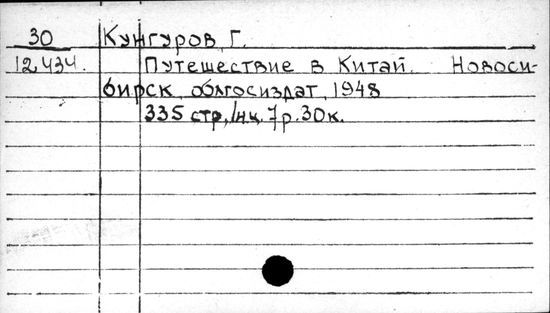 30 Кунгуров, Г.
12434. Путешествие в Китай. Новоси-
бирск, облгосиздат, 1948
335 стр., /н.ц. 7р. 30к.